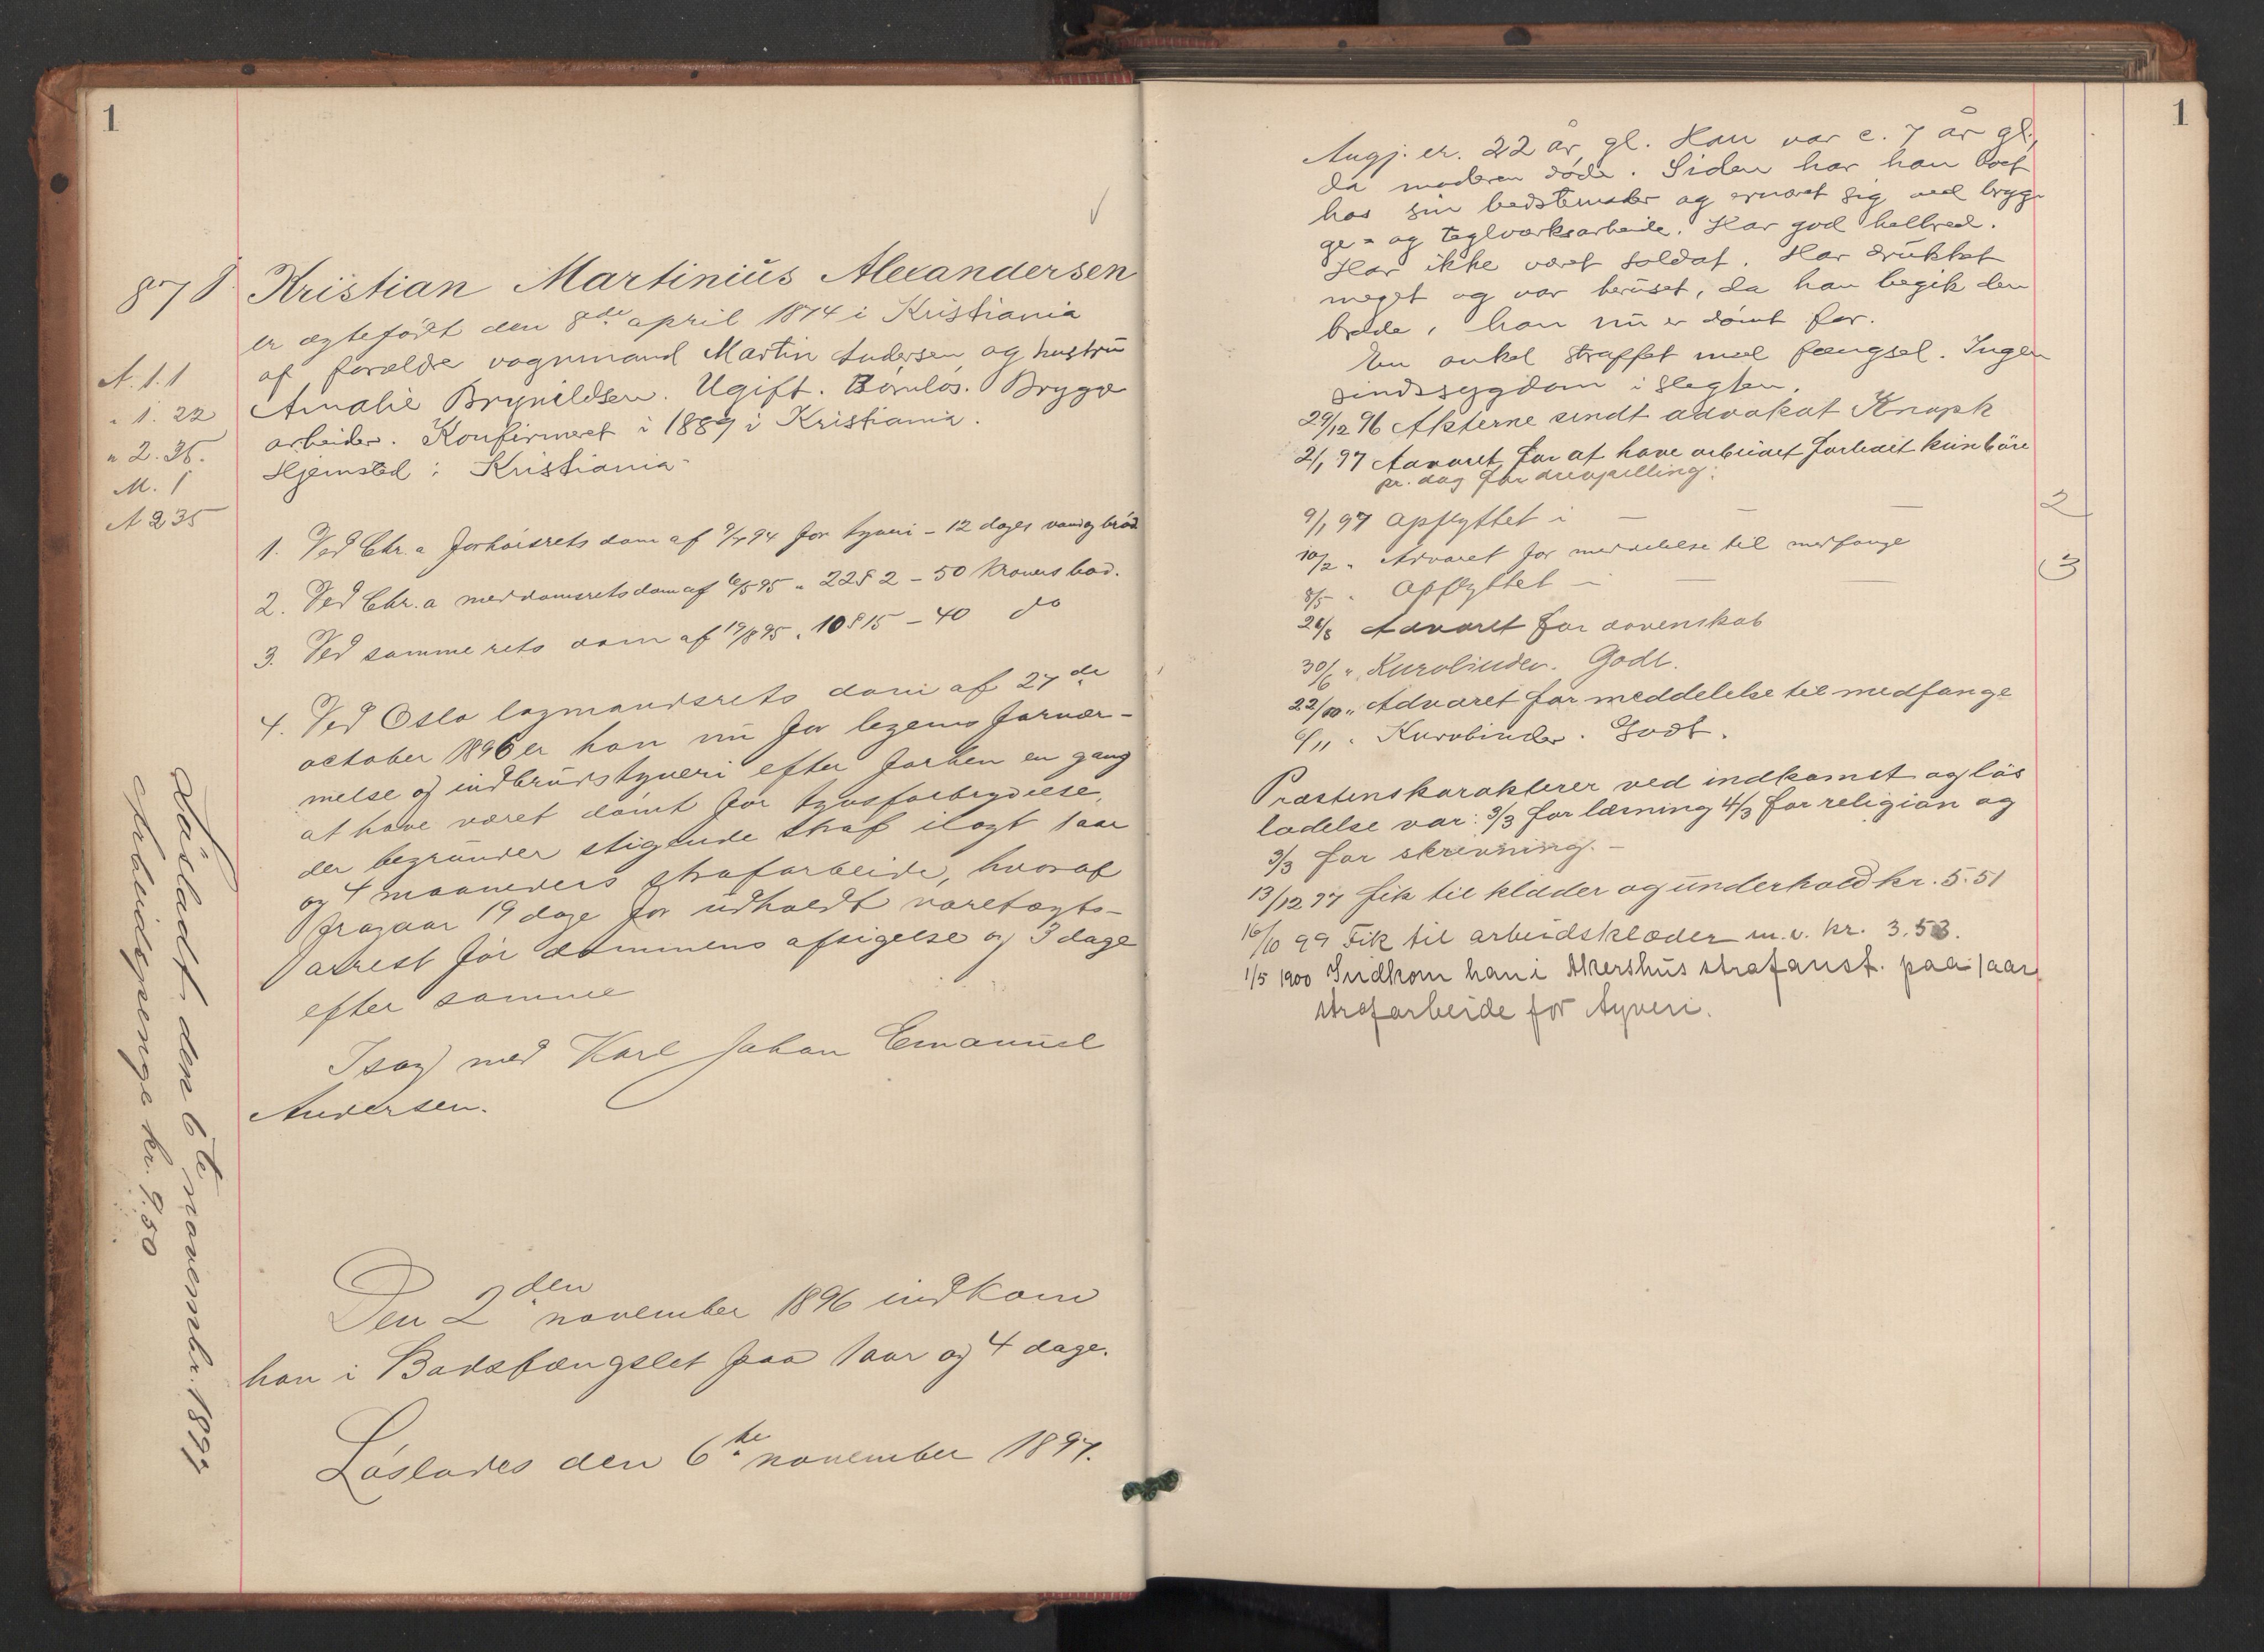 1
878
Kristian Martinius Alexandersen
er ægtefødt den 8de april 1874 i Kristiania
af forældre vognmand Martin Andersen og hustru
Amalie Brynildsen. Ugift. Barnløs. Brygge
arbeider. Konfirmeret i 1889 i Kristiania.
Hjemsted: Kristiania
A. 1. 1
" 1. 22
" 2. 36.
M. 1
A 235
1. Ved Chr.a forhørsrets dom af for tyveri - 12 dages vand og brød
2. Ved Chr.a meddomsrets dom af 6/5 95 " 22 § 2 - 50 kroners bod.
3. Ved samme rets dom af 19/8 95 " 10 § 15 - 40 do
4. Ved Oslo lagmandsrets dom af 27de
october 1896 er han nu for legems fornær-
melse og indbrudstyveri efter forhen en gang
at have været dømt for tyvsforbrydelse,
der begrunder stigende straf ilagt 1 aar
og 4 maaneders strafarbeide, hvoraf
fragaar 19 dage for udholdt varetægts-
arrest før dommens afsigelse og 3 dage
efter samme
I sag med Karl Johan Emanuel
Andersen.
Den 2den november 1896 indkom
han i Bodsfængslet paa 1 aar og 4 dage.
Løslodes den 6te november 1897.
Løsladt den 6te november 1897
Arbeidspenge kr. 9.50
1
Angj. er. 22 år gl. Han var c. 7 år gl.,
da moderen døde. Siden har han boet
hos sin bedstemoder og ernæret sig ved bryg-
ge- og teglværksarbeide. Har god helbred.
Har ikke været soldat. Har drukket
meget og var beruset, da han begik den
brøde, han nu er dømt for.
En onkel straffet med fængsel. Ingen
sindssygdom i slegten.
29/12 96 Akterne sendt advokat
2/1 97 Advaret for at have arbeidet forleait kun 6 øre
pr. dag for
9/1 97 Opflyttet i — — — 2
10/2 " Advaret for meddelelse til medfange
8/5 " Opflyttet i — — 3
26/5 Advaret for dovenskab
30/6 " Kurvbinder. Godt.
22/10 " Advaret for meddelelse til medfange
6/11 " Kurvbinder. Godt.
Præstens karakterer ved indkomst og løs
ladelse var: 3/3 for læsning 4/3 for religion og
3/3 for skrivning. -
13/12 97 fik til klæder og underhold kr. 5.51
16/10 99 Fik til arbeidsklæder m.v. kr. 3.53.
1/5 1900 Indkom han i Akershus strafanst. paa 1 aar
strafarbeide for tyveri.